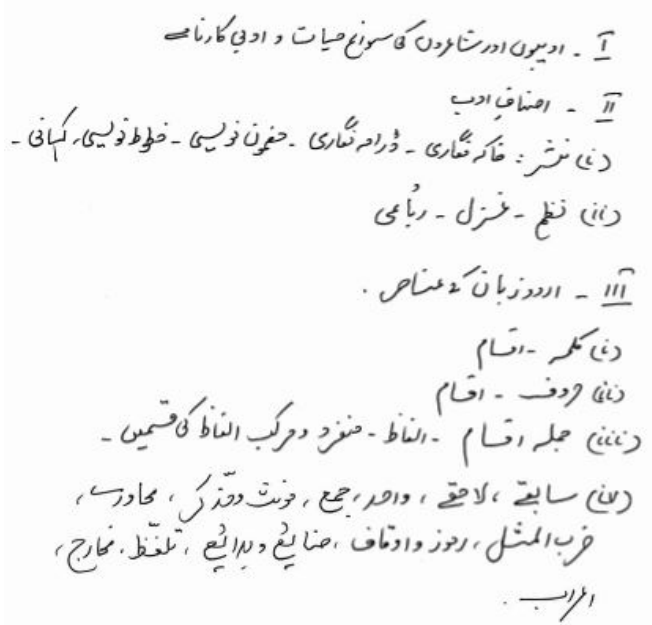 I ۔ ادیبوں اور شاعروں کی سوانح حیات و ادبی کارنامے
II ۔ اصنافِ ادب
(i) نثر : خاکہ نگاری ۔ ڈرامہ نگاری ۔ مضمون نویسی ۔ خطوط نویسی، کہانی ۔
(ii) نظم ۔ غزل ۔ رباعی
III ۔ اردو زبان کے عناصر ۔
(i) کلمہ ۔ اقسام
(ii) حروف ۔ اقسام
(iii) جملہ اقسام ۔ الفاظ ۔ منفرد و مرکب الفاظ کی قسمیں ۔
(iv) سابقے، لاحقے، واحد، جمع، مونث و مذکر، محاورے،
ضرب المثل، رموز و اوقاف، صنائع و بدائع، تلفّظ، مخارج،
اعراب ۔